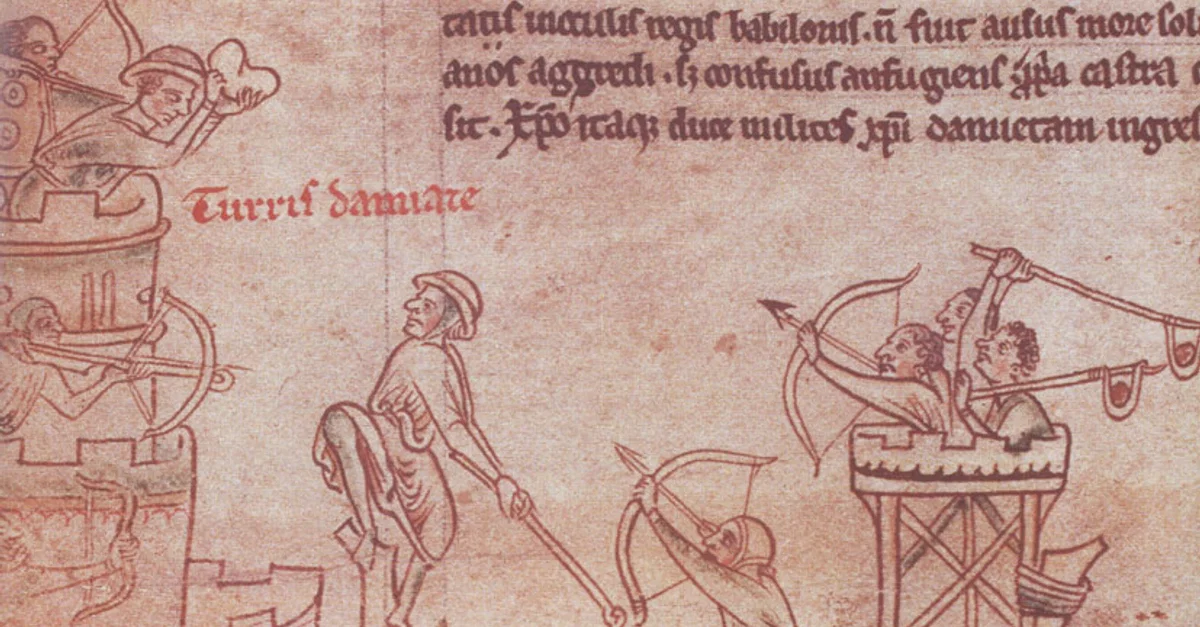 tatis incculis regis babilonis. n̄ fuit ausus more sol
anos aggredi. sʒ confusus aufugiens ꝓp̄a castra
sit. Xp̄o itaqꝫ duce milites xp̄i damietam ingre
Turris damiate